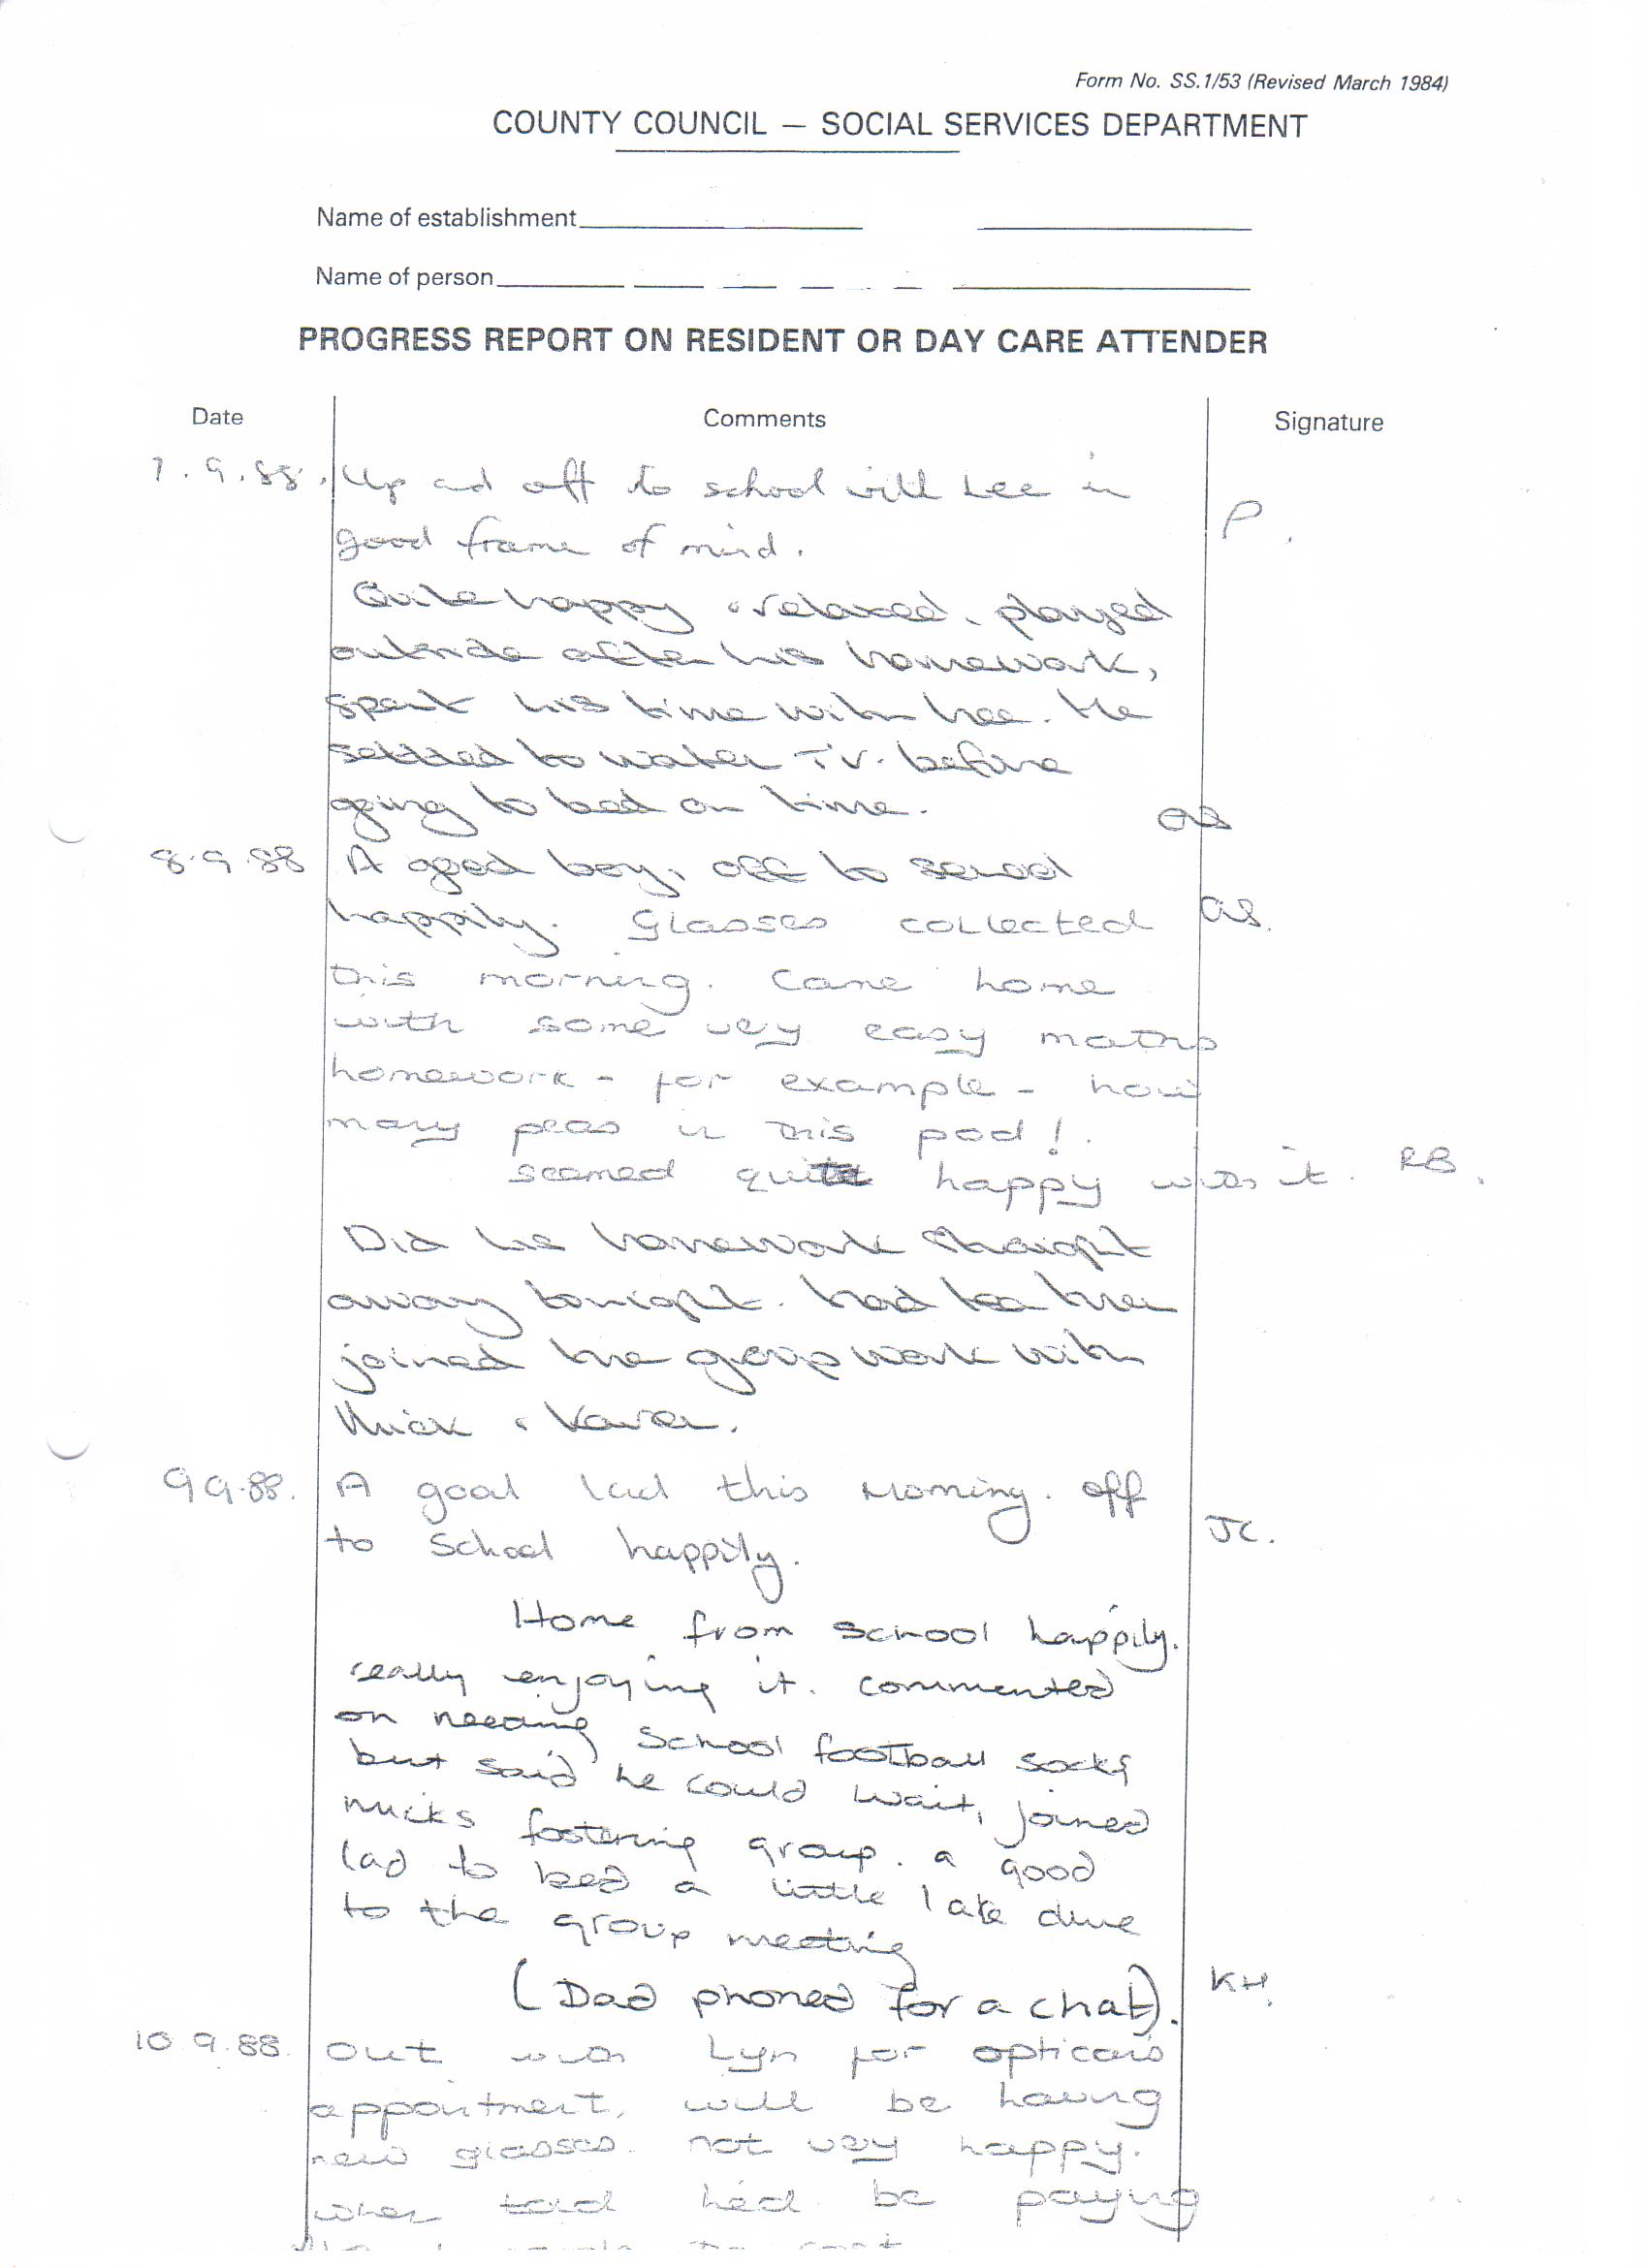 Form No. SS.1/53 (Revised March 1984)
COUNTY COUNCIL — SOCIAL SERVICES DEPARTMENT
Name of establishment
Name of person
PROGRESS REPORT ON RESIDENT OR DAY CARE ATTENDER
Date Comments Signature
7.9.88. Up and off to school with Lee in
good frame of mind. P.
Quite happy & relaxed, played
outside after his homework,
spent his time with Lee. He
settled to watch T.V. before
going to bed on time. as
8.9.88 A good boy, off to school
happily. as. Glasses collected
this morning. Came home
with some very easy maths
homework - for example - how
many peas in this pod!.
seemed quite happy with it. RB.
Did his homework straight
away tonight. had tea then
joined the group work with
Mick & Karen.
9 9.88. A good lad this Morning. off
to School happily. JC.
Home from school happily.
really enjoying it. commented
on needing school football socks
but said he could wait, joined
micks fostering group. a good
lad to bed a little late due
to the group meeting
(Dad phoned for a chat). KH.
10.9.88. Out with Lyn for opticans
appointment, will be having
new glasses. not very happy.
when told he'd be paying